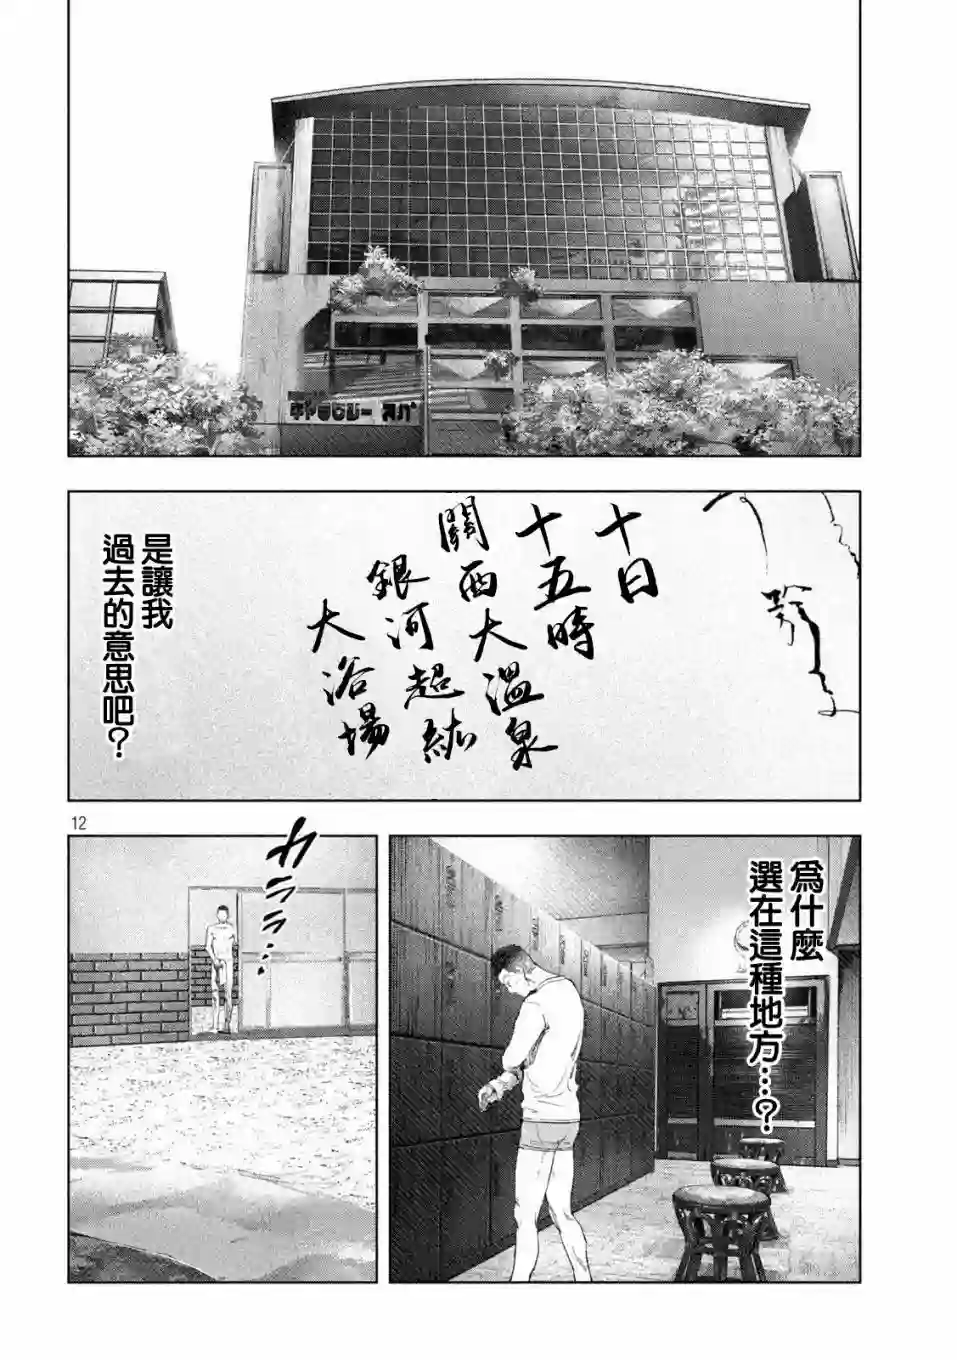 ギャラクシースパ
十日
十五時
關西大溫泉
銀河超級
大浴場
是讓我
過去的意思吧？
12
為什麼
選在這種地方…？
カラララ…